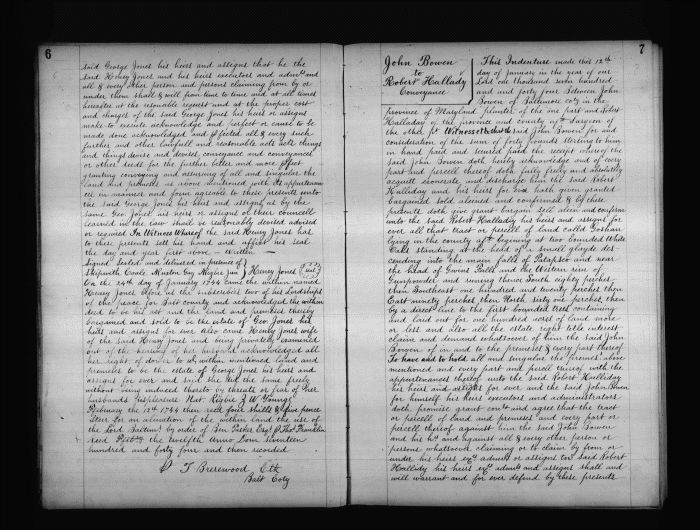 6
said George Jones his heirs and assigns that he the
said Henry Jones and his heirs executors and admrs and
all & every other person and persons claiming from by or
under them shall & will from time to time and at all times
hereafter at the resonable request and at the proper cost
and charges of the said George Jones his heirs or assigns
make to execute acknowledge and perfect or cause to be
made done acknowledged and pfected all & every such
further and other lawfull and reasonable acts acts things
and things devise and devises conveyance and conveyances
or other deeds for the further better and more pfect
granting conveying and assureing of all and singular the
land and premises as above mentioned with its appurtenan
ces in manner and form agreable to these presents unto
the said George Jones his heirs and assigns as by the
same Geo Jones his heirs or assigns or their councell
learned in the law shall be reasonably devised advised
or required In Witness Whereof the said Henry Jones has
to these presents set his hand and affixt his seal
the day and year first above – Written –
Signed Sealed and delivered in presence of
Skipwith Coale. Minton Guy Nigbie Junr } Henry Jones (seal)
On the 24th day of January 1744 came the within named
Henry Jones before us the subscribers two of his Lordships
of the peace for Balt county and acknowledged the within
deed to be his act and the land and premises thereby
bargained and sold to be the estate of Geo Jones his
heirs and assigns for ever Also came Henry Jones wife
of the said Henry Jones and being privately examined
out of the hearing of her husband acknowledged all
her right of dower to ye within mentioned land and
premises to be the estate of George Jones his heirs and
assigns for ever and said she did the same freely
without being induced thereto by threats or fear of her
husbands displeasure Nat. Rigbie & W Young
February the 12th 1744 then recd four shills & five pence
Ster for an alienation of the within land the use of
the Lord Baltimo by order of Jno Parke Esqr Thos Franklin
recd Feb the twelfth Anno Dom Seventeen
hundred and forty four and then recorded
P T Brerewood Clk
Balt Coty
7
John Bowen
to
Robert Hallady
Conveyance
This Indenture made this 12th
day of January in the year of our
Lord one thousand seven hundred
and and forty four Between John
Bowen of Baltimore coty in the
province of Maryland planter of the one part and Robert
Halladay of the province and county afd Surgeon of
the other pt Witnesseth that the said John Bowen for and
consideration of the sum of forty pounds Sterling to him
in hand paid and secured paid the receipt whereof the
said John Bowen doth hereby acknowledge and of every
part and percell thereof doth fully freely and absolutely
acquitt exonerate and discharge him the said Robert
Halliday and his heirs for ever hath given granted
bargained sold aliened and confirmed & by these
presents doth give grant bargain sell alien and confirm
unto the said Robert Halliday his heirs and assigns for
ever all that tract or persell of land calld Goshan
lying in the county aft begining at two bounded White
Oaks standing at the head of a small glyde des
cending into the main falls of Patapsco and near
the head of Gwins Falls and the Western run of
Gunpowder and runing thence South eighty perches
then Southeast one hundred and twenty perches then
East ninety perches then North sixty one perches then
by a direct line to the first bounded tree containing
and laid out for one hundred acres of land more
or less and also all the estate right title interest
claim and demand whatsoever of him the said John
Bowen of in and to the premises & every part thereof
To have and to hold all and singular the promes above
mentioned and every part and percell thereof with the
appurtenances thereof unto the said Robert Halliday
his heirs and assigns for ever and the said John Bowen
for himself his heirs executors and administrators
doth promise grant cont and agree that the tract
or parcell of land and premises and every part or
percell thereof against him the said John Bowen
and his hs and against all & every other person or
persons whatsoever claiming or to claim by from or
under his heirs exrs admrs or assigns to ye said Robert
Halliday his heirs exrs admrs and assigns shall and
will warrant and for ever defend by these presents